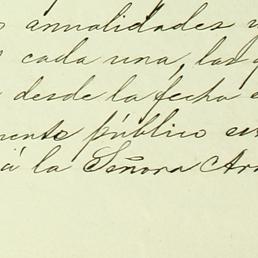 anualidades
cada una, las
desde la fecha
público
á la Señora